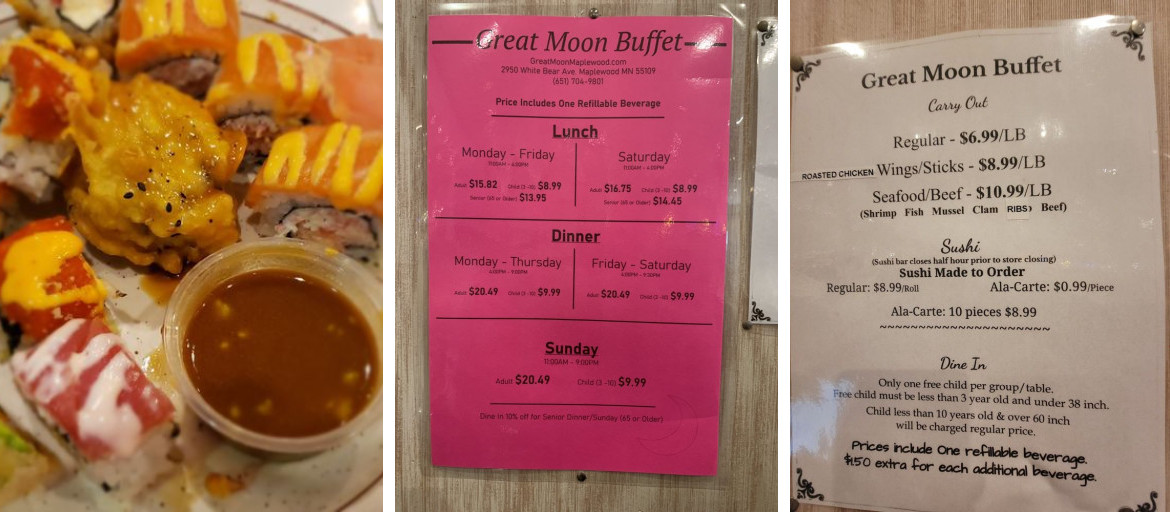 Great Moon Buffet
GreatMoonMaplewood.com
2950 White Bear Ave. Maplewood MN 55109
(651) 704-9801
Price Includes One Refillable Beverage
Lunch
Monday - Friday
11:00AM - 4:00PM
Adult $15.82 Child (3 -10) $8.99
Senior (65 or Older) $13.95
Saturday
11:00AM - 4:00PM
Adult $16.75 Child (3 -10) $8.99
Senior (65 or Older) $14.45
Dinner
Monday - Thursday
4:00PM - 9:00PM
Adult $20.49 Child (3 -10) $9.99
Friday - Saturday
4:00PM - 9:30PM
Adult $20.49 Child (3 -10) $9.99
Sunday
11:00AM - 9:00PM
Adult $20.49 Child (3 -10) $9.99
Dine In 10% off for Senior Dinner/Sunday (65 or Older)
Great Moon Buffet
Carry Out
Regular - $6.99/LB
ROASTED CHICKEN Wings/Sticks - $8.99/LB
Seafood/Beef - $10.99/LB
(Shrimp Fish Mussel Clam RIBS) Beef)
Sushi
(Sushi bar closes half hour prior to store closing)
Sushi Made to Order
Regular: $8.99/Roll Ala-Carte: $0.99/Piece
Ala-Carte: 10 pieces $8.99
~~~~~~~~~~~~~~~~~~~~~
Dine In
Only one free child per group/table.
Free child must be less than 3 year old and under 38 inch.
Child less than 10 years old & over 60 inch
will be charged regular price.
Prices include One refillable beverage.
$1.50 extra for each additional beverage.